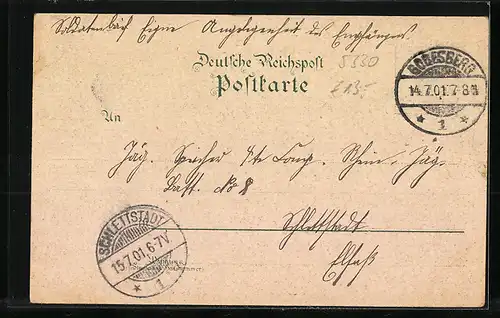 Soldatenbrief Eigne Angelegenheit des Empfängers.
Deutsche Reichspost
Postkarte
5330
£ 13,-
GODESBERG
14.7.01.7-8N
* 1 *
An
Jäg. Speicher Comp. Rhein. Jäg.
Batt. No 8
Schlettstadt
Elsaß
SCHLETTSTADT
15.7.01.6-7V.
* 1